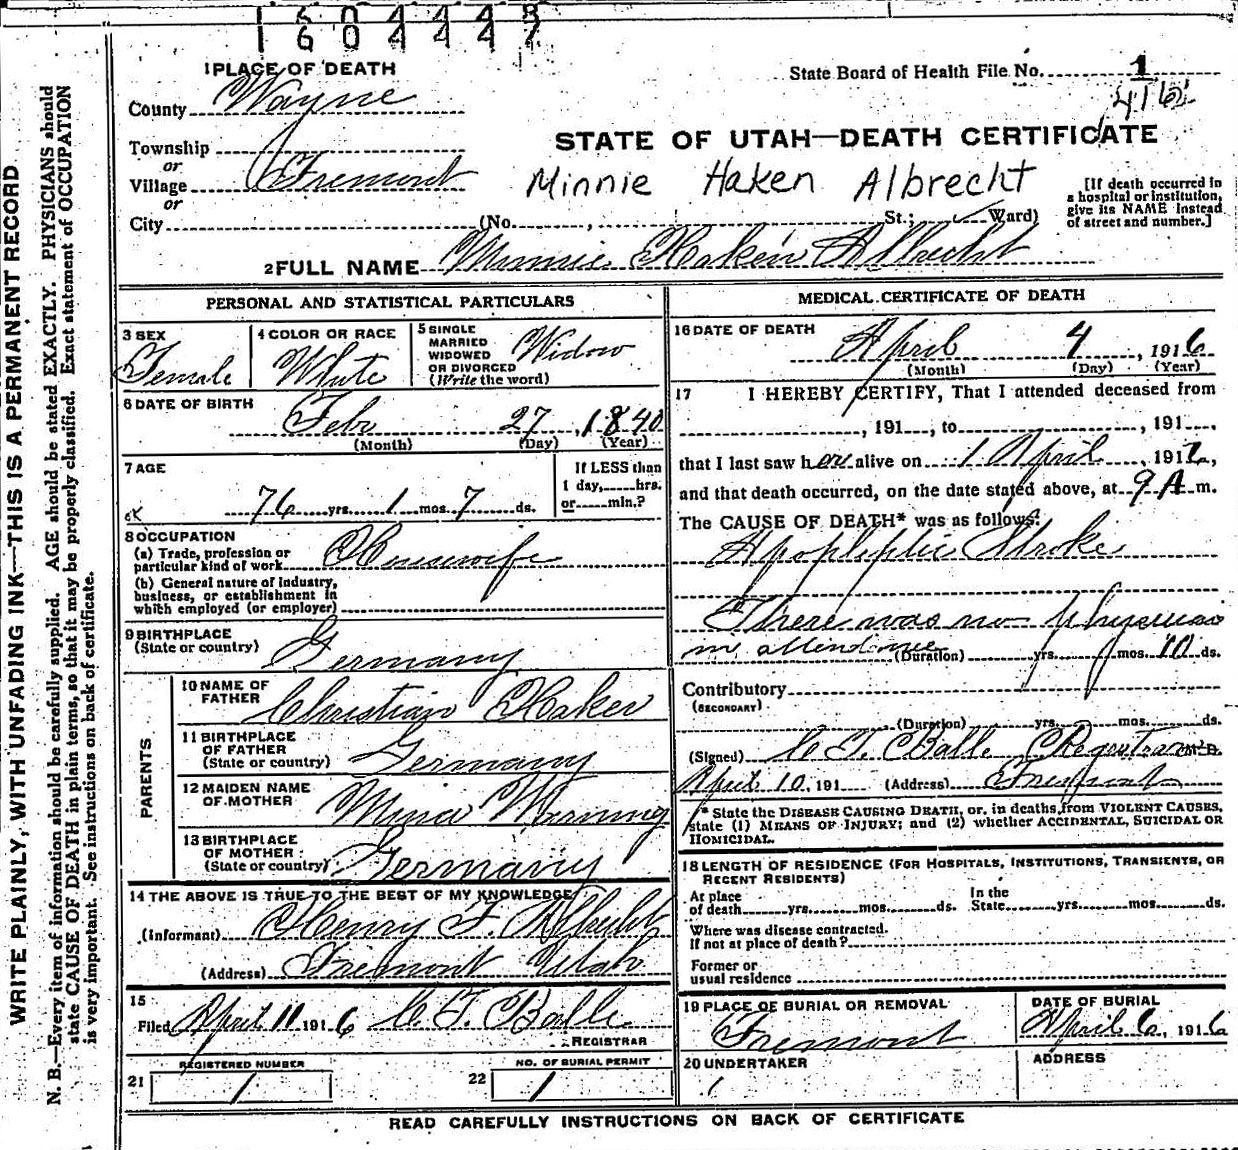 1 6 0 4 4 4 8
1 6 0 4 4 4 7
1 PLACE OF DEATH
State Board of Health File No. 1
416
County Wayne
STATE OF UTAH—DEATH CERTIFICATE
Township
or
Village Fremont
Minnie Haken Albrecht
or
City (No. , St.; Ward)
[If death occurred in
a hospital or institution,
give its NAME instead
of street and number.]
2 FULL NAME Minnie Haken Albrecht
PERSONAL AND STATISTICAL PARTICULARS
3 SEX
Female
4 COLOR OR RACE
White
5 SINGLE
MARRIED
WIDOWED
OR DIVORCED
(Write the word)
Widow
6 DATE OF BIRTH
Feby 27, 1840
(Month) (Day) (Year)
7 AGE
76 yrs. 1 mos. 7 ds.
If LESS than
1 day, hrs.
or min.?
8 OCCUPATION
(a) Trade, profession or
particular kind of work Housewife
(b) General nature of Industry,
business, or establishment in
which employed (or employer)
9 BIRTHPLACE
(State or country) Germany
PARENTS
10 NAME OF
FATHER Christian Haker
11 BIRTHPLACE
OF FATHER
(State or country) Germany
12 MAIDEN NAME
OF MOTHER Mina Werning
13 BIRTHPLACE
OF MOTHER
(State or country) Germany
14 THE ABOVE IS TRUE TO THE BEST OF MY KNOWLEDGE
(Informant) Henry F. Albrecht
(Address) Fremont Utah
15
Filed April 11 1916 C. F. Balle
REGISTRAR
REGISTERED NUMBER
21 1
NO. OF BURIAL PERMIT
22 1
MEDICAL CERTIFICATE OF DEATH
16 DATE OF DEATH
April 4, 1916
(Month) (Day) (Year)
17 I HEREBY CERTIFY, That I attended deceased from
, 191 , to , 191 ,
that I last saw her alive on 1 April, 1916,
and that death occurred, on the date stated above, at 9 A m.
The CAUSE OF DEATH* was as follows:
Apopleptic Stroke
There was no physician
in attendance (Duration) yrs. mos. 10 ds.
Contributory
(SECONDARY)
(Duration) yrs. mos. ds.
(Signed) C F Balle Registrar M. D.
April 10, 191 (Address) Fremont
* State the DISEASE CAUSING DEATH, or, in deaths from VIOLENT CAUSES,
state (1) MEANS OF INJURY; and (2) whether ACCIDENTAL, SUICIDAL OR
HOMICIDAL.
18 LENGTH OF RESIDENCE (FOR HOSPITALS, INSTITUTIONS, TRANSIENTS, OR
RECENT RESIDENTS)
At place
of death yrs. mos. ds.
In the
State yrs. mos. ds.
Where was disease contracted.
If not at place of death?
Former or
usual residence
19 PLACE OF BURIAL OR REMOVAL
Fremont
DATE OF BURIAL
April 6, 1916
20 UNDERTAKER
ADDRESS
READ CAREFULLY INSTRUCTIONS ON BACK OF CERTIFICATE
WRITE PLAINLY, WITH UNFADING INK—THIS IS A PERMANENT RECORD
N. B.—Every item of information should be carefully supplied. AGE should be stated EXACTLY. PHYSICIANS should
state CAUSE OF DEATH in plain terms, so that it may be properly classified. Exact statement of OCCUPATION
is very important. See instructions on back of certificate.